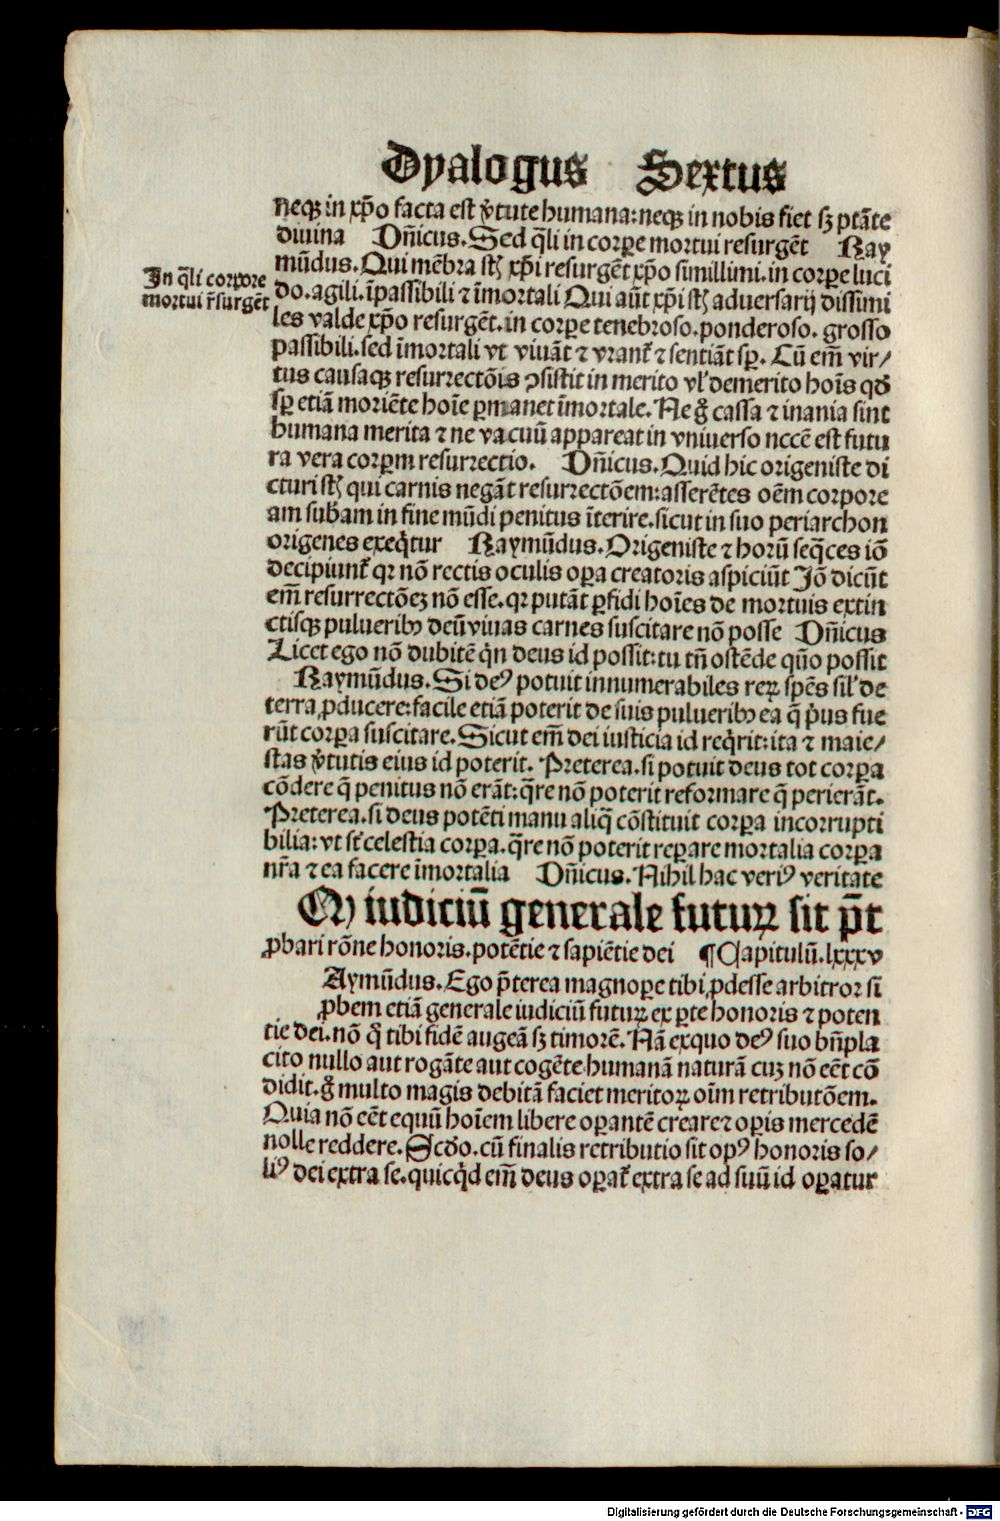 Dyalogus Sextus
neqꝫ in xp̄o facta est v̓tute humana: neqꝫ in nobis fiet sꝫ ptāte
diuina Dn̄icus. Sed q̄li in corpe mortui resurgēt Ray
mūdus. Qui mēbra st̄ xp̄i resurgēt xp̄o simillimi. in corpe luci
In q̄li corpore
mortui r̄surgēt
do. agili. īpassibili ⁊ īmortali Qui aūt xp̄i st̄ aduersarij dissimi
les valde xp̄o resurgēt. in corpe tenebroso. ponderoso. grosso
passibili. sed īmortali vt viuāt ⁊ vrant᷑ ⁊ sentiāt sꝑ. Cū em̄ vir⸗
tus causaqꝫ resurrectōis ꝯsistit in merito vl̓ demerito hoīs qd̓
sꝑ etiā moriēte hoīe ꝑmanet īmortale. Ne g̊ cassa ⁊ inania sint
humana merita ⁊ ne vacuū appareat in vniuerso nccē est futu
ra vera corpꝝm resurrectio. Dn̄icus. Quid hic origeniste di
cturi st̄ qui carnis negāt resurrectōem: asserētes oēm corpore
am subam in fine mūdi penitus īterire. sicut in suo periarchon
origenes exeq̄tur Raymūdus. Origeniste ⁊ horū seq̄ces iō
decipiunt᷑ qꝛ nō rectis oculis oꝑa creatoris aspiciūt Jō dicūt
em̄ resurrectōeꝫ nō esse. qꝛ putāt ꝑfidi hoīes de mortuis extin
ctisqꝫ pulueribꝰ deū viuas carnes suscitare nō posse Dn̄icus
Licet ego nō dubitē q̇n deus id possit: tu tn̄ ostēde quō possit
Raymūdus. Si deꝰ potuit innumerabiles reꝝ spēs sil̓ de
terra ꝓducere: facile etiā poterit de suis pulueribꝰ ea q̄ p̓us fue
rūt corꝑa suscitare. Sicut em̄ dei iusticia id req̇rit: ita ⁊ maie⸗
stas v̓tutis eius id poterit. Preterea. si potuit deus tot corꝑa
cōdere q̄ penitus nō erāt: q̄re nō poterit reformare q̄ perierāt.
Preterea. si deus potēti manu aliq̄ cōstituit corꝑa incorrupti
bilia: vt st̄ celestia corꝑa. q̄re nō poterit reꝑare mortalia corꝑa
nr̄a ⁊ ea facere īmortalia Dn̄icus. Nihil hac veriꝰ veritate
Qꝙ iudiciū generale futuꝝ sit p̄t
ꝓbari rōne honoris. potētie ⁊ sapiētie dei ¶ Capitulū. lxxxv
Aymūdus. Ego p̄terea magnope tibi ꝓdesse arbitror si
ꝓbem etiā generale iudiciū futuꝝ ex ꝑte honoris ⁊ poten
tie dei. nō q̊ tibi fidē augeā sꝫ timorē. Nā exquo deꝰ suo bn̄pla
cito nullo aut rogāte aut cogēte humanā naturā cuꝫ nō eēt cō
didit. g̊ multo magis debitā faciet meritoꝝ oīm retributōem.
Quia nō eēt equū hoīem libere oꝑantē creare ⁊ oꝑis mercedē
nolle reddere. Scd̓o. cū finalis retributio sit opꝰ honoris so⸗
liꝰ dei extra se. quicq̇d em̄ deus oꝑat᷑ extra se ad suū id oꝑatur
Digitalisierung gefördert durch die Deutsche Forschungsgemeinschaft - DFG